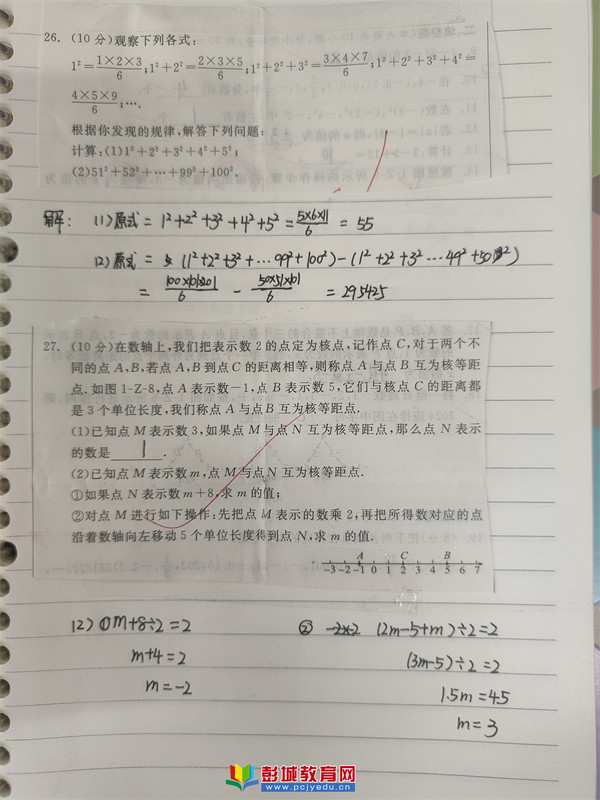 26. (10分)观察下列各式:
1²=1×2×3/6;1²+2²=2×3×5/6;1²+2²+3²=3×4×7/6;1²+2²+3²+4²=
4×5×9/6;….
根据你发现的规律,解答下列问题:
计算:(1)1²+2²+3²+4²+5²;
(2)51²+52²+…+99²+100².
解: (1)原式=1²+2²+3²+4²+5²=5×6×11/6=55
(2)原式=(1²+2²+3²+…99²+100²)-(1²+2²+3²…49²+50²)
=100×101×201/6-50×51×101/6=295425
27. (10分)在数轴上,我们把表示数2的点定为核点,记作点C,对于两个不
同的点A,B,若点A,B到点C的距离相等,则称点A与点B互为核等距
点.如图1-Z-8,点A表示数-1,点B表示数5,它们与核点C的距离都
是3个单位长度,我们称点A与点B互为核等距点.
(1)已知点M表示数3,如果点M与点N互为核等距点,那么点N表示
的数是 1 .
(2)已知点M表示数m,点M与点N互为核等距点.
①如果点N表示数m+8,求m的值;
②对点M进行如下操作:先把点M表示的数乘2,再把所得数对应的点
沿着数轴向左移动5个单位长度得到点N,求m的值.
A C B
-3 -2 -1 0 1 2 3 4 5 6 7
(2)①m+8÷2=2
m+4=2
m=-2
② -2×2 (2m-5+m)÷2=2
(3m-5)÷2=2
1.5m=4.5
m=3
彭城教育网
www.pcjyedu.cn